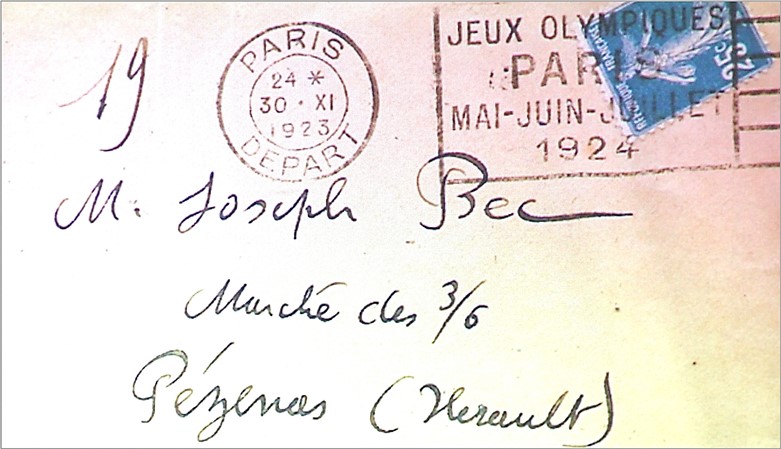 19
PARIS
24 *
30 · XI
1923
DEPART
JEUX OLYMPIQUES
PARIS
MAI-JUIN-JUILLET
1924
RÉPUBLIQUE FRANÇAISE
25c
M. Joseph Bec
Marché des 3/6
Pézenas (Herault)